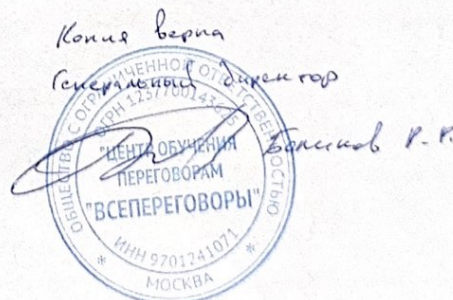 Копия верна
Генеральный директор
ОБЩЕСТВО С ОГРАНИЧЕННОЙ ОТВЕТСТВЕННОСТЬЮ
"ЦЕНТР ОБУЧЕНИЯ
ПЕРЕГОВОРАМ
"ВСЕПЕРЕГОВОРЫ"
ИНН 9701241071
* МОСКВА *